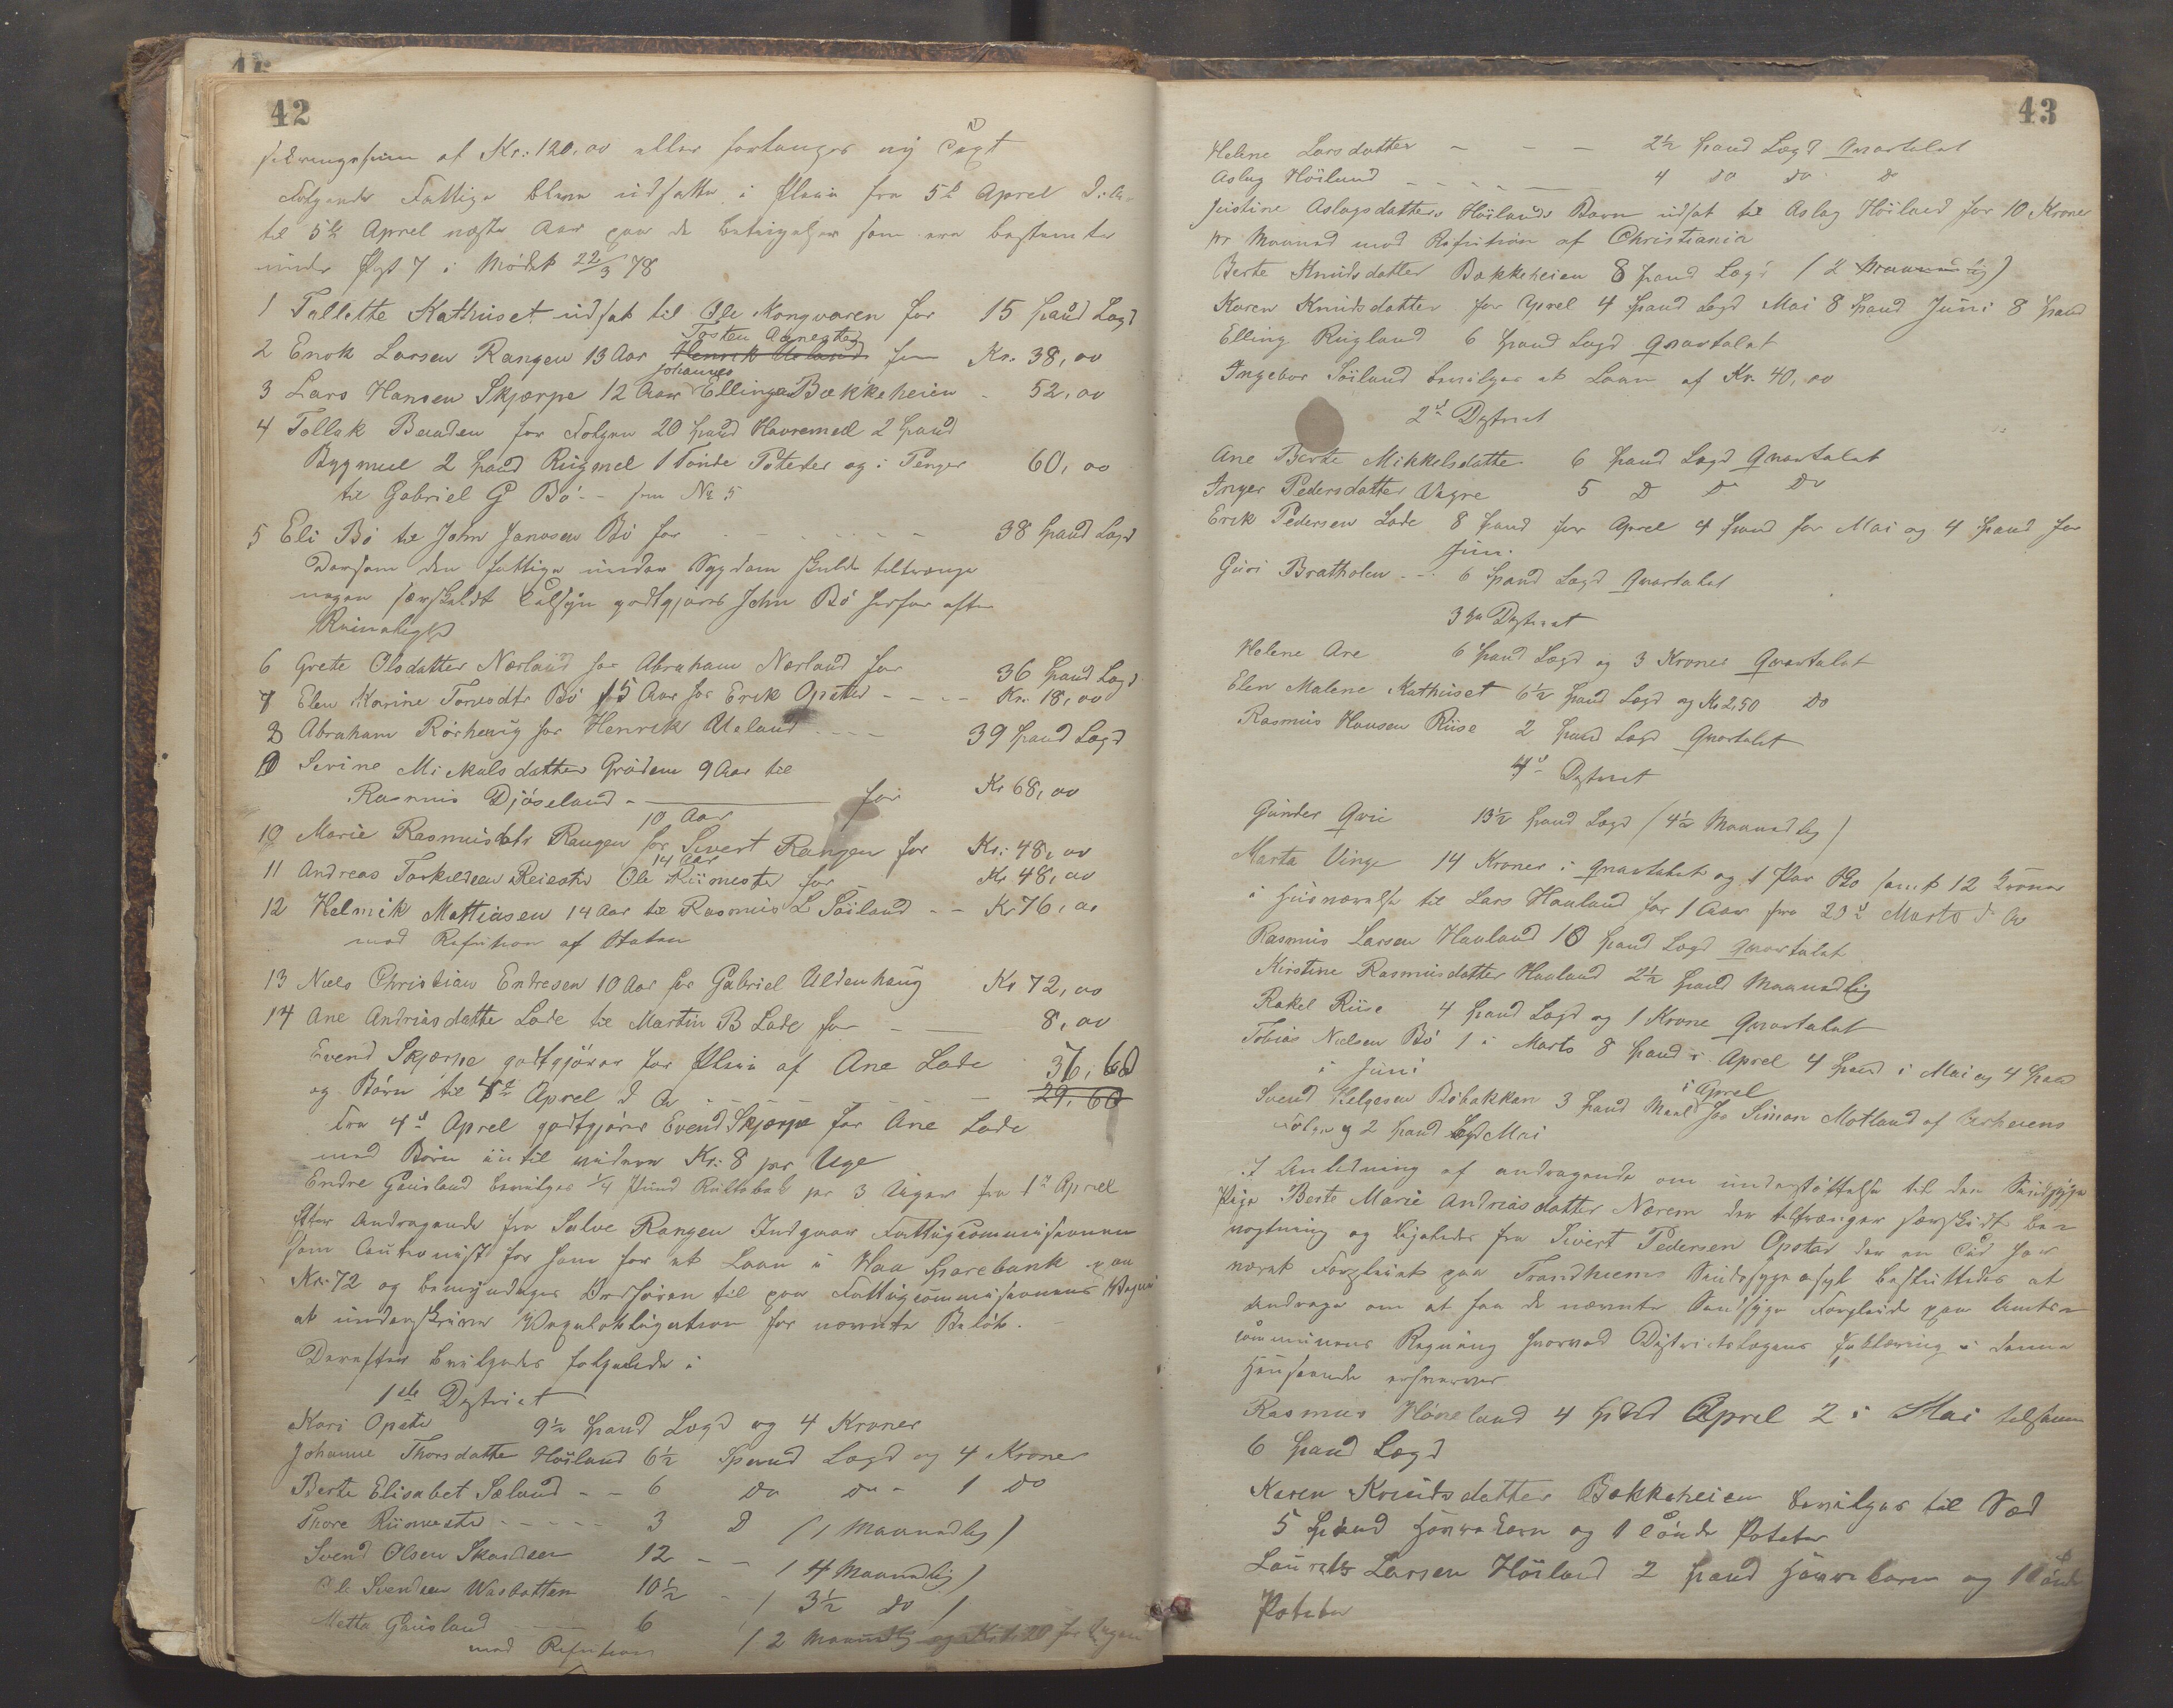 42
af Kr: 120,00 eller forlanges ny
Følgende Fattige blev udsatte i Pleie fra 5te April d: A.
til 5te April næste Aar paa de Betingelser som ere bestemte
under Post 7 i Mødet 22/3 78
1 Tallette Kathuset udsat til Ole Kongvaren for 15 Spand Lægd
Tosten Aanestad
2 Enok Larsen Rangen 13 Aar Henrik Ueland for Kr. 38,00
Johannes
3 Lars Hansen Skjærpe 12 Aar Ellingsen Bækkeheien - 52,00
4 Tollak for Følgen 20 Spand Havremel 2 Spand
Bygmeel 2 Spand Rugmel 1 Tønde Poteter og i Penger 60,00
til Gabriel G Bø - som No 5
5 Eli Bø til John Janosen Bø for - - - - 38 Spand Lægd
Dersom den fattige under Sygdom skulde tiltrænge
nogen særskildt Tilsyn godtgjøres John Bø herfor efter
6 Grete Olsdatter Nærland hos Abraham Nærland for 36 Spand Lægd
7 Elen Karine Bø 15 Aar hos Erik Opsted - - - Kr. 18,00
8 Abraham Rørheug hos Henrik Ueland - - - 39 Spand Lægd
9 Serine Mickalsdatter Grødem 9 Aar til
Rasmus Djøseland - for Kr 68,00
10 Aar
10 Marie Rasmusdatr Rangen hos Sivert Rangen for Kr: 48,00
14 Aar
11 Andreas Torkildsen Reiestd Ole Riimestd for Kr 48,00
12 Helmik Mattiasen 14 Aar til Rasmus L Søiland - - Kr 76,00
med Refution af Staten
13 Niels Christian Endresen 10 Aar hos Gabriel Uldenhaug Kr 72,00
14 Ane Andriasdatter Lode til Martin B Lode for - 8,00
Evend Skjærpe godtgjøres for Pleie af Ane Lode 36,60
og Børn til 4de April d A - - - - 29,60
Fra 4d April godtgjøres Evend Skjærpe for Ane Lode
med Børn indtil videre Kr: 8 pr Uge
Endre Gausland bevilges 1/4 Pund Rultobak pr 3 Uger fra 1st April
Efter Andragende fra Salve Rangen Indgaar Fattigcommissionen
som Cautionist for ham for et Laan i Haa Sparebank paa
Kr: 72 og bemyndiges Ordføreren til paa Fattigcommissionens Vegne
at underskrive Vexelobligation for nævnte Beløb.
Derefter bevilgedes følgende i
1ste Distrikt
Kari Opstd 9½ Spand Lægd og 4 Kroner
Johanne Thorsdatter Høiland 6½ Spand Lægd og 4 Kroner
Berte Elisabet Sæland - - 6 do do - 1 do
Thore Riimestd - - - - 3 D (1 Maanedlig)
Svend Olsen 12 - - (4 Maanedlig)
Ole Svendsen 10½ - (3½ do)
Metta Gausland 6 (2 Maanedlig og Kr
med Refution
43
Helene Larsdatter - - - 2½ Spand Lægd Qvartalet
Aslag Høiland - - - 4 do do do
Justine Aslagsdatters Høilands Barn udsat til Aslag Høiland for 10 Kroner
pr Maaned mod Refution af Christiania
Berte Knudsdatter Bækkeheien 8 Spand Lægd (2 Maanedlig)
Karen Knudsdatter for April 4 Spand Lægd Mai 8 Spand Juni 8 Spand
Elling Rugland 6 Spand Lægd Qvartalet
Ingebor Søiland bevilges et Laan af Kr. 40,00
2d Distrikt
Ane Berte Mikkelsdatter 6 Spand Lægd Qvartalet
Inger Pedersdatter Vigre 5 D Do Do
Erik Pedersen Lode 8 Spand for April 4 Spand for Mai og 4 Spand for
Juni.
Guri Bratholen - - 6 Spand Lægd Qvartalet
3die Distrikt
Helene Are 6 Spand Lægd og 3 Kroner Qvartalet
Elen Malene Kathuset 6½ Spand Lægd og Kr 2,50 Do
Rasmus Hansen Riise 2 Spand Lægd Qvartalet
4d Distrikt
Gunder Qvie 13½ Spand Lægd (4½ Maanedlig)
Marta Vinge 14 Kroner i Qvartalet og 1 Par Sko samt 12 Kroner
i Husværelse til Lars Haaland for 1 Aar fra 29d Marts d Ar
Rasmus Larsen Haaland 10 Spand Lægd Qvartalet
Kirstine Rasmusdatter Haaland 2½ Spand Maanedlig
Rakel Riise 4 Spand Lægd og 1 Krone Qvartalet
Tobias Nielsen Bø 1 i Marts 8 Spand i April 4 Spand i Mai og 4 Spand
i Juni
i April
Svend Helgesen Bøbakken 3 Spand Meel hos Simon Motland af
Følgen og 2 Spand Lægd Mai
I Anledning af andragende om understøttelse til den Sindsyge
Pige Berte Marie Andriasdatter Nærem der tiltrænger særskildt Be-
vogtning og ligeledes fra Sivert Pedersen Opstad der en Tid har
været Forpleiet paa Trondhiems Sindssygeasyl besluttedes at
andrage om at faa de nævnte Sindsyge Forpleiede paa Amts-
communens Regning hvorved Distriktslægens Erklæring i denne
Henseende erhverves
Rasmus Høneland 4 Spnd April 2 i Mai tilsam
6 Spand Lægd
Karen Knudsdatter Bækkeheien bevilges til Sæd
5 Spand Havrekorn og 1 Tønde Poteter
Laurits Larsen Høiland 2 Spand Havrekorn og 1 Tønde
Poteter